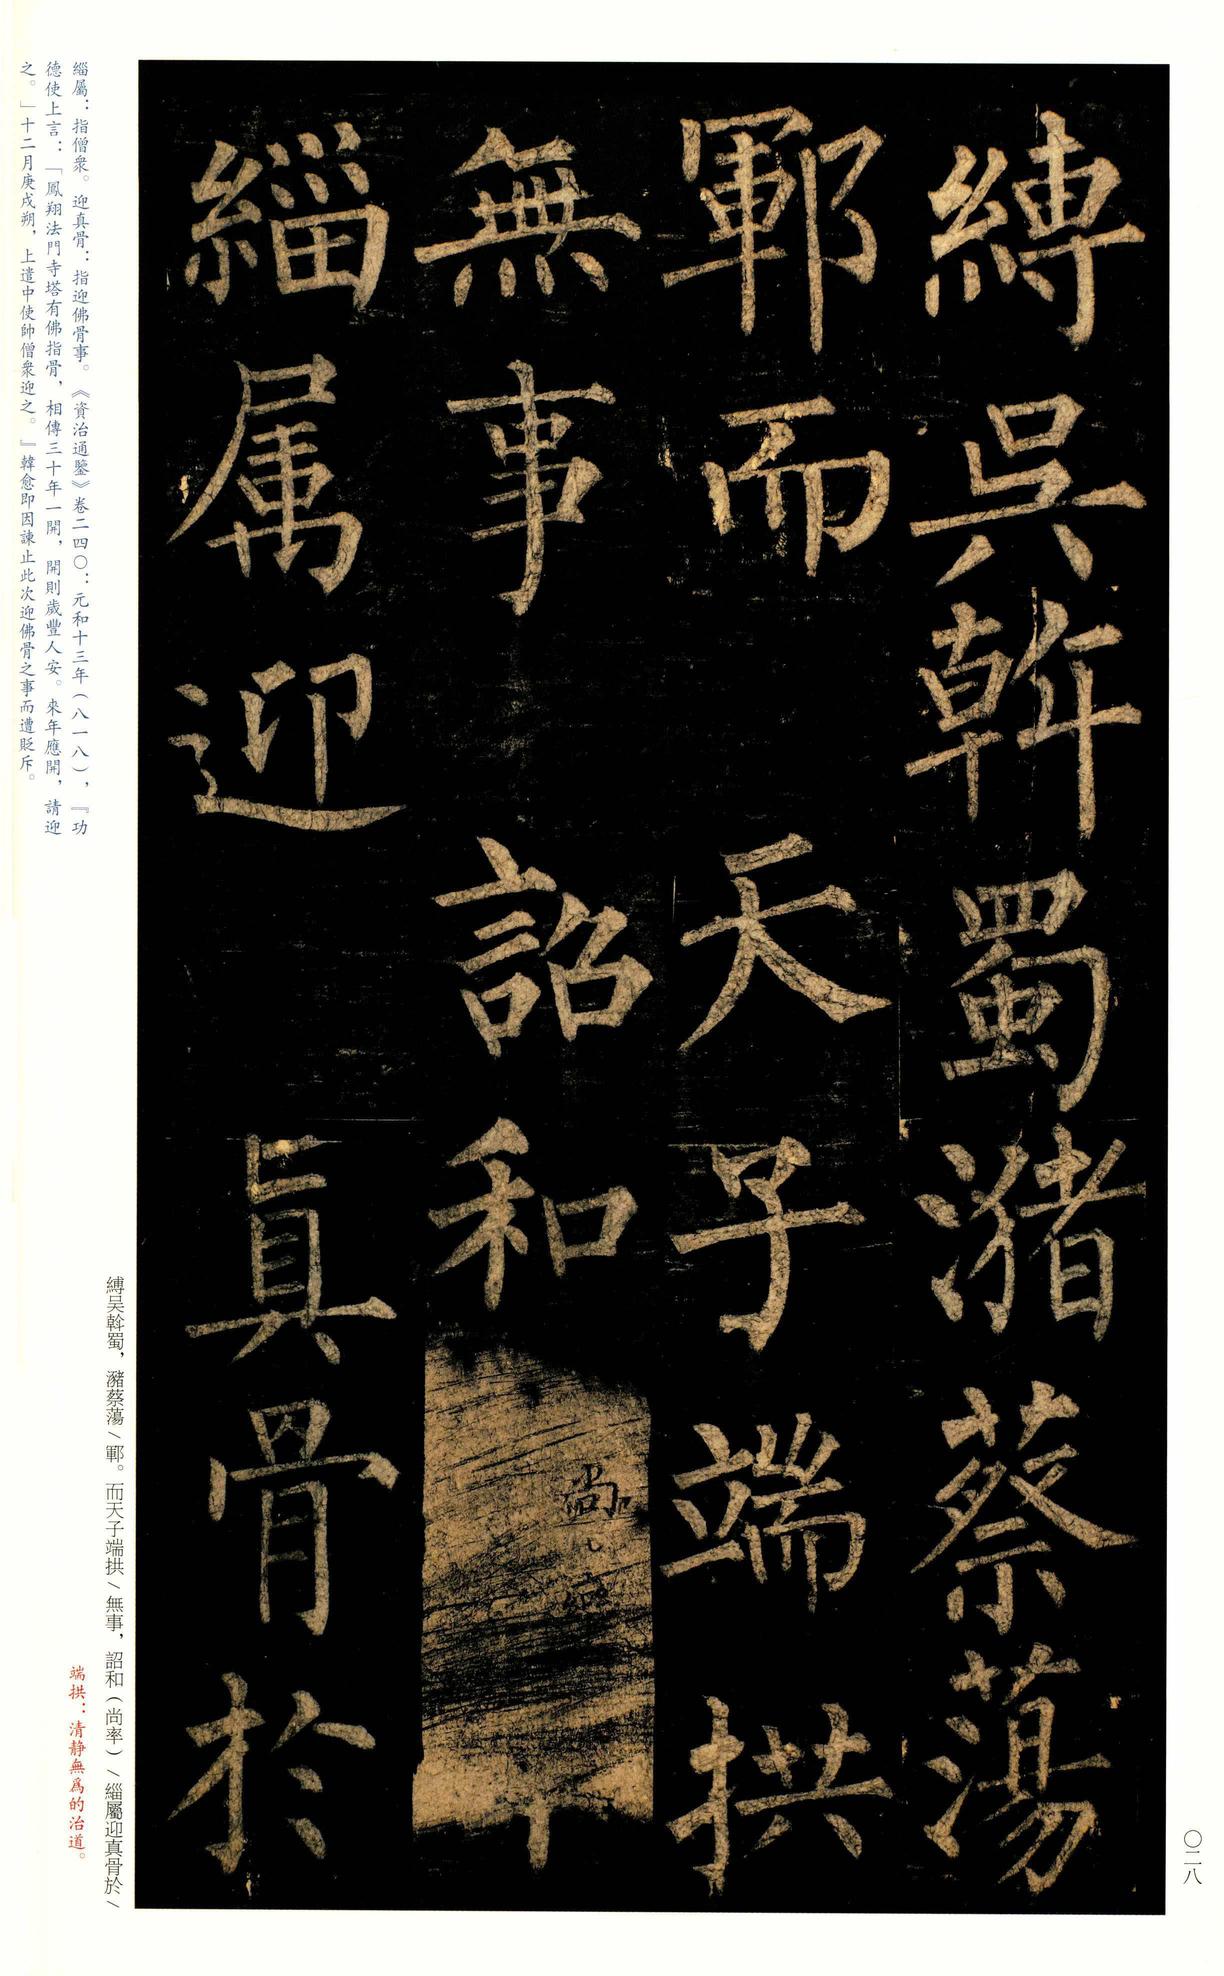 縳吳斡蜀瀦蔡蕩
鄆而天子端拱
無事詔和尚率
緇属迎真骨於
縛吴斡蜀，瀦蔡蕩／鄆。而天子端拱／無事，詔和（尚率）／緇屬迎真骨於／
端拱：清静無爲的治道。
緇屬：指僧衆。迎真骨：指迎佛骨事。《資治通鑒》卷二四〇：元和十三年（八一八），『功
德使上言：「鳳翔法門寺塔有佛指骨，相傳三十年一開，開則歲豐人安。來年應開，請迎
之。」十二月庚戌朔，上遣中使帥僧衆迎之。』韓愈即因諫止此次迎佛骨之事而遭貶斥。
〇二八